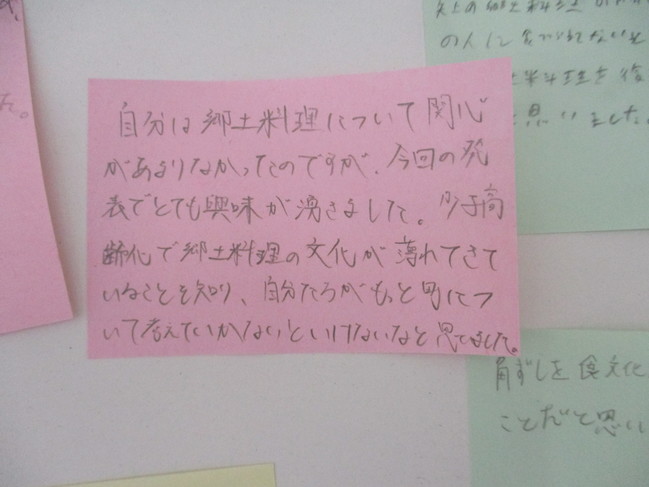 自分は郷土料理について関心
があまりなかったのですが、今回の発
表でとても興味が湧きました。少子高
齢化で郷土料理の文化が薄れてきて
いることを知り、自分たちがもっと町につ
いて考えていかないといけないなと思いました。
の人に
料理を
思いました。
角ずしを食文化
ことだと思い